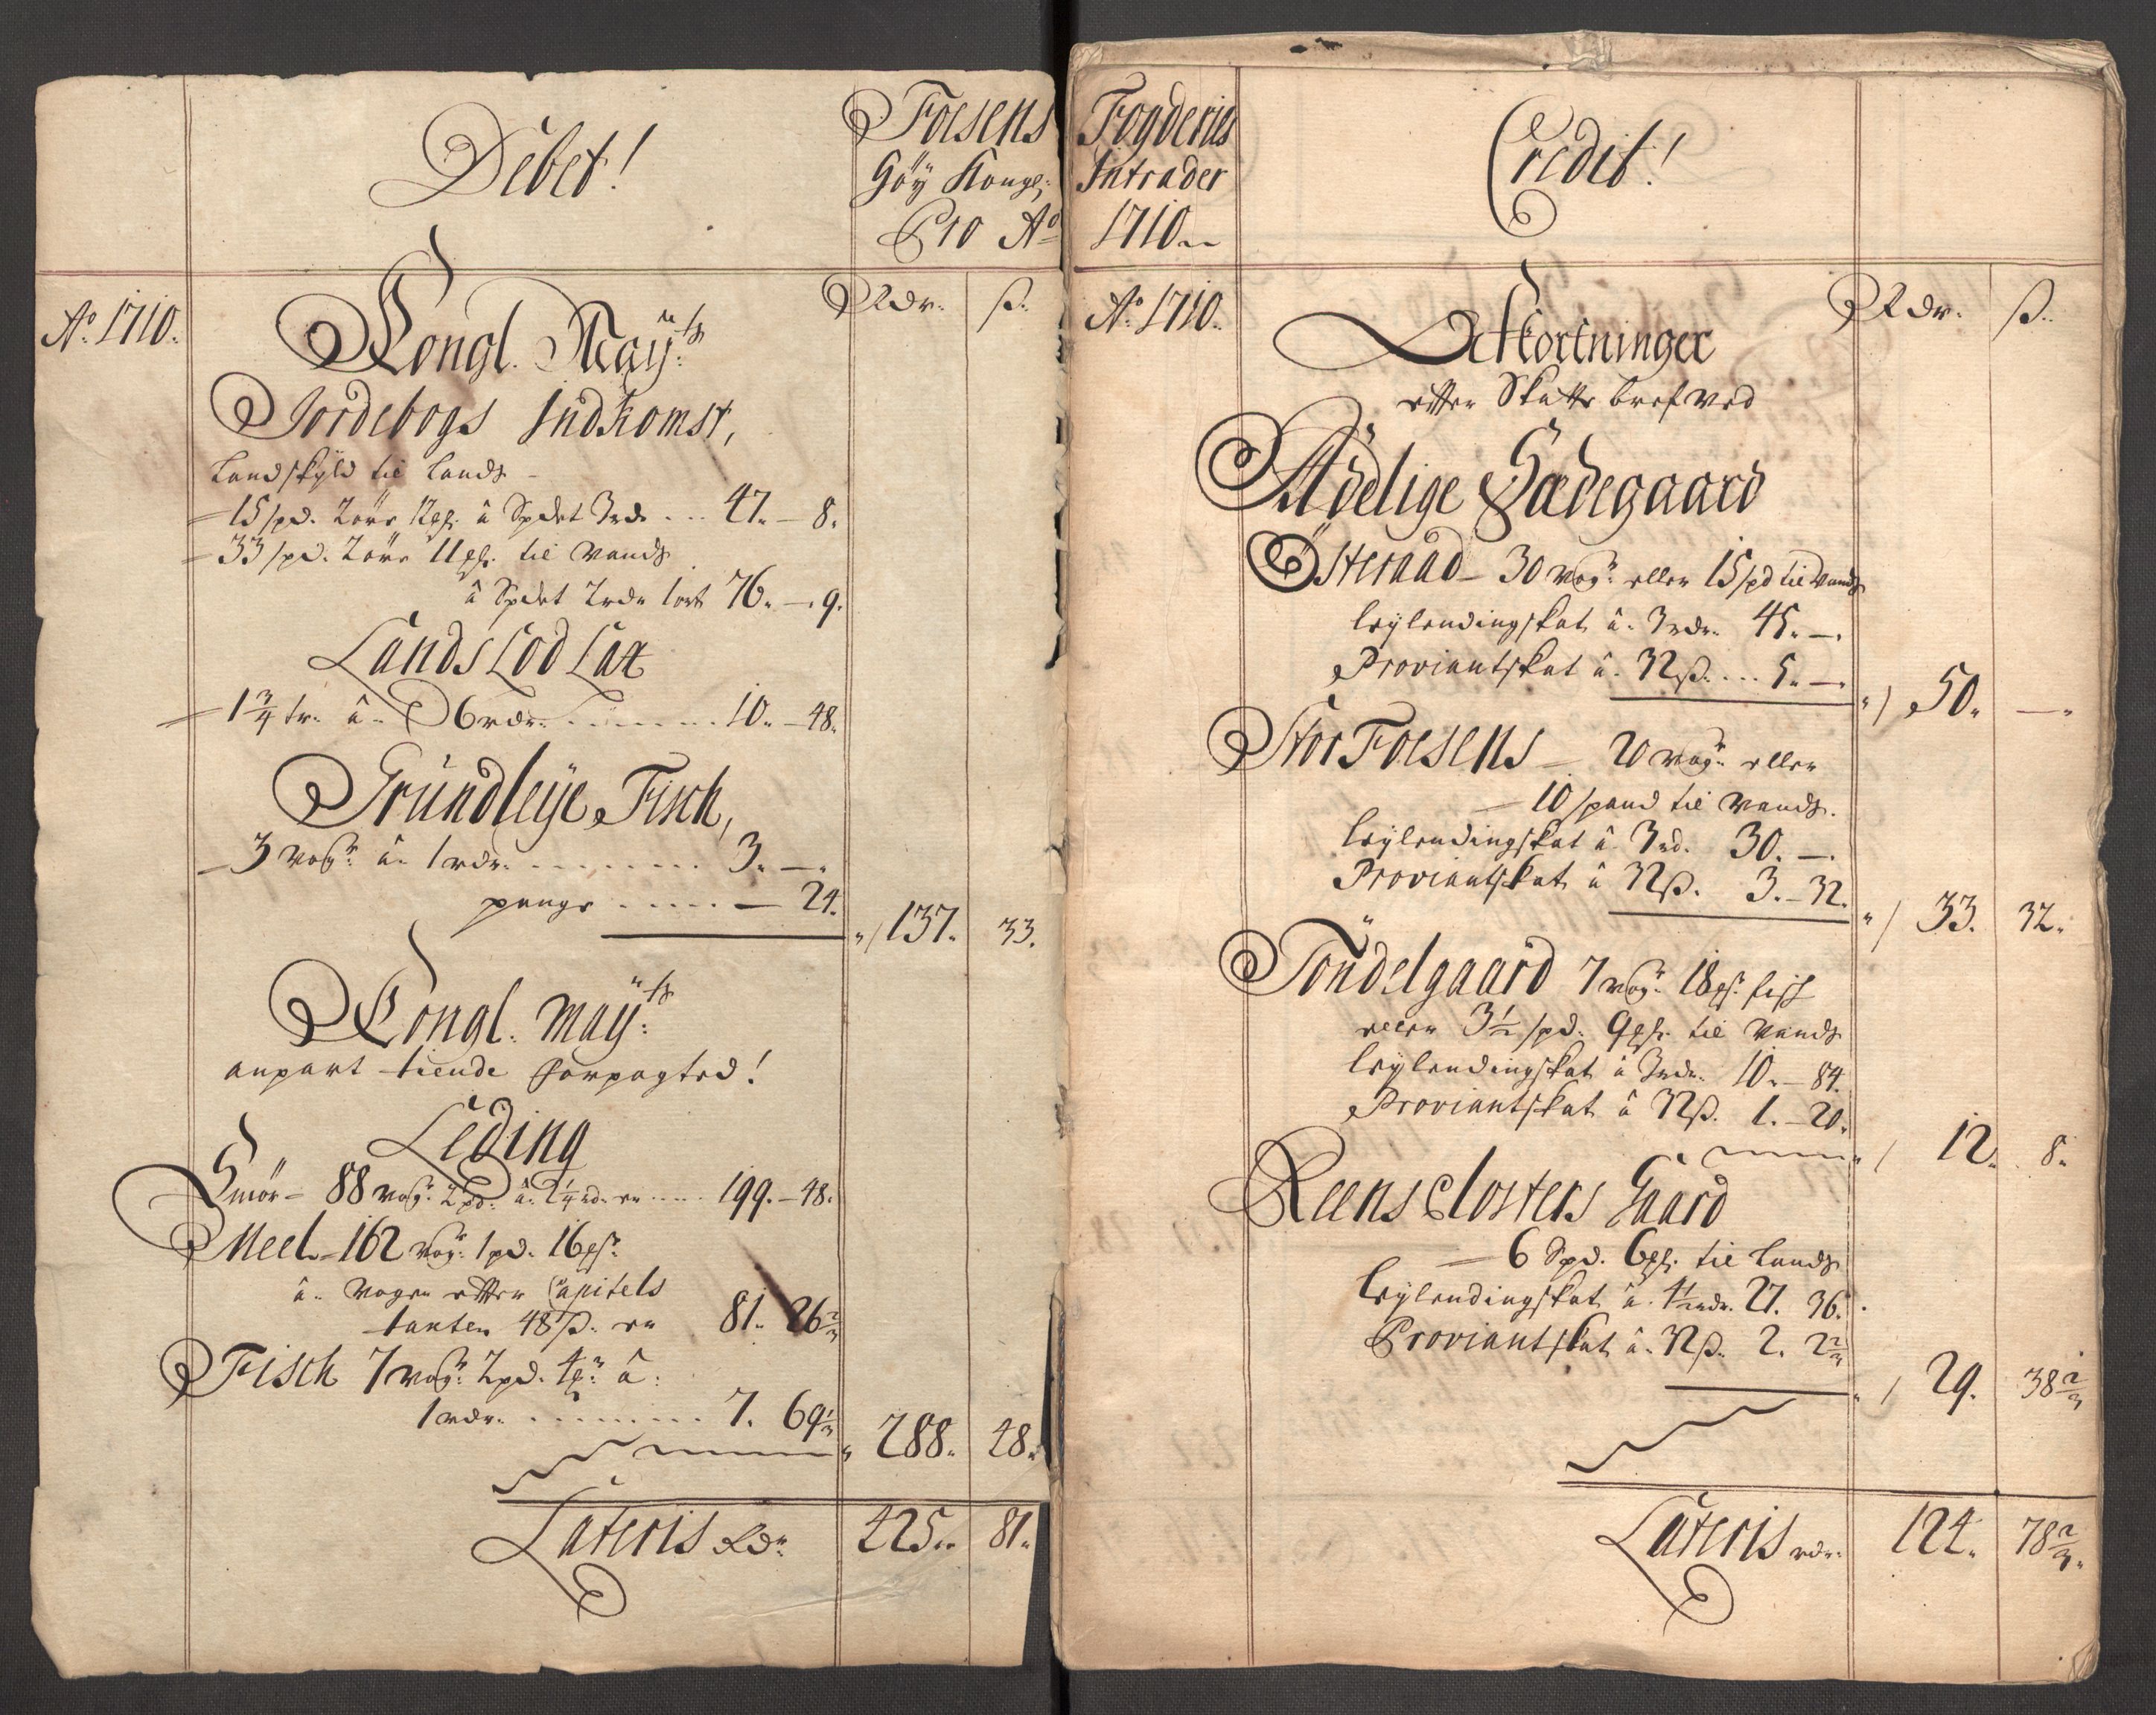 Debet!
Foesens
Göÿ Kongl:
Pro Aō
Ao. 1710.
Rdr. ß.
Kongl. Maÿ:ts
Jordebogs Indkomst,
Landskyld til Lands
15 spd. 2 ört 12 ps. â Spdet 3 rd. ... 47. - 8.
33 spd. 2 ört 11 ps. til Vands
â Spdet 2 rdr 1 ort 76. - 9.
Landslod Lax
1¾ tr. â 6 rdr. ... 10. - 48.
Grundleÿe Fisch,
3 vog: â 1 rdr. ... 3. -.
penge ... - 24.
137. 33.
Kongl. Maÿ:ts
anpart tiende forpagted!
Leding
Smör - 88 vog: 2 pd: â 2¼ rd. er ... 199. - 48.
Meel - 162 vog: 1 pd. 16 ps:
â Vogen efter Capitels
taxten 48 ß. er 81. 26⅔
Fisch 7 vog: 2 pd. 4 ps: â
1 rdr. ... 7. 69⅓
288. 48.
Lateris Rdr. 425. 81.
Fogderies
Intrader
1710
Credit!
Ao. 1710.
Rdr. ß.
Afkortninger
efter Skatte brefved
Adelige Sædegaard
Österaad - 30 vog: eller 15 spd til Vands
leÿlendingskat â 3 rdr. 45. -.
Proviantskat â 32 ß. ... 5. -.
50. -
Stor Foesens - 20 vog: eller
10 spand til Vands.
leÿlendingskat â 3 rd. 30. -.
Proviantskat â 32 ß. 3. - 32.
33. 32.
Töndelgaard 7 vog: 18 ps: fisk
eller 3½ spd. 9 ps. til Vands
leÿlendingskat â 3 rdr. 10. - 84.
Proviantskat â 32 ß. 1. - 20.
12. 8.
Reens Closters Gaard
6 Spd. 6 ps. til Lands
leÿlendingskat â 4½ rdr. 27. 36.
Proviantskat â 32 ß. 2. 2⅔
29. 38⅔
Lateris rdr. 124. 78⅔